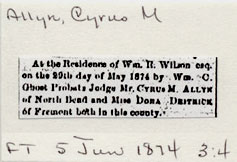 Allyn, Cyrus M
At the Residence of Wm. R. Wilson esq.
on the 29th day of May 1874 by Wm. C.
Ghost Probate Judge Mr. CYRUS M. ALLYN
of North Bend and Miss DORA DRITRICK
of Fremont both in this county.
FT 5 Jun 1874 3:4